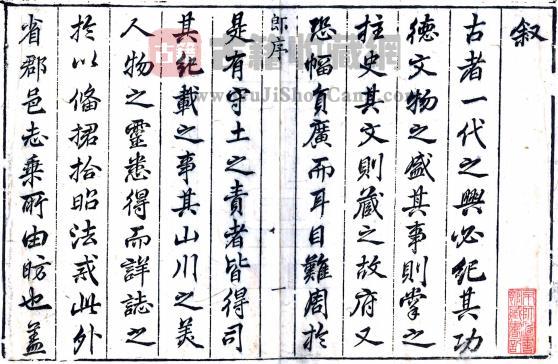 叙
古者一代之興必紀其功
德文物之盛其事則掌之
柱史其文則藏之故府又
恐幅負廣而耳目難周於
郎序
一
是有守土之責者皆得司
其紀載之事其山川之美
人物之靈悉得而詳誌之
於以俻捃拾昭法戒此外
省郡邑志乗所由昉也蓋
古籍
古籍收藏网
www.GuJiShouCang.com